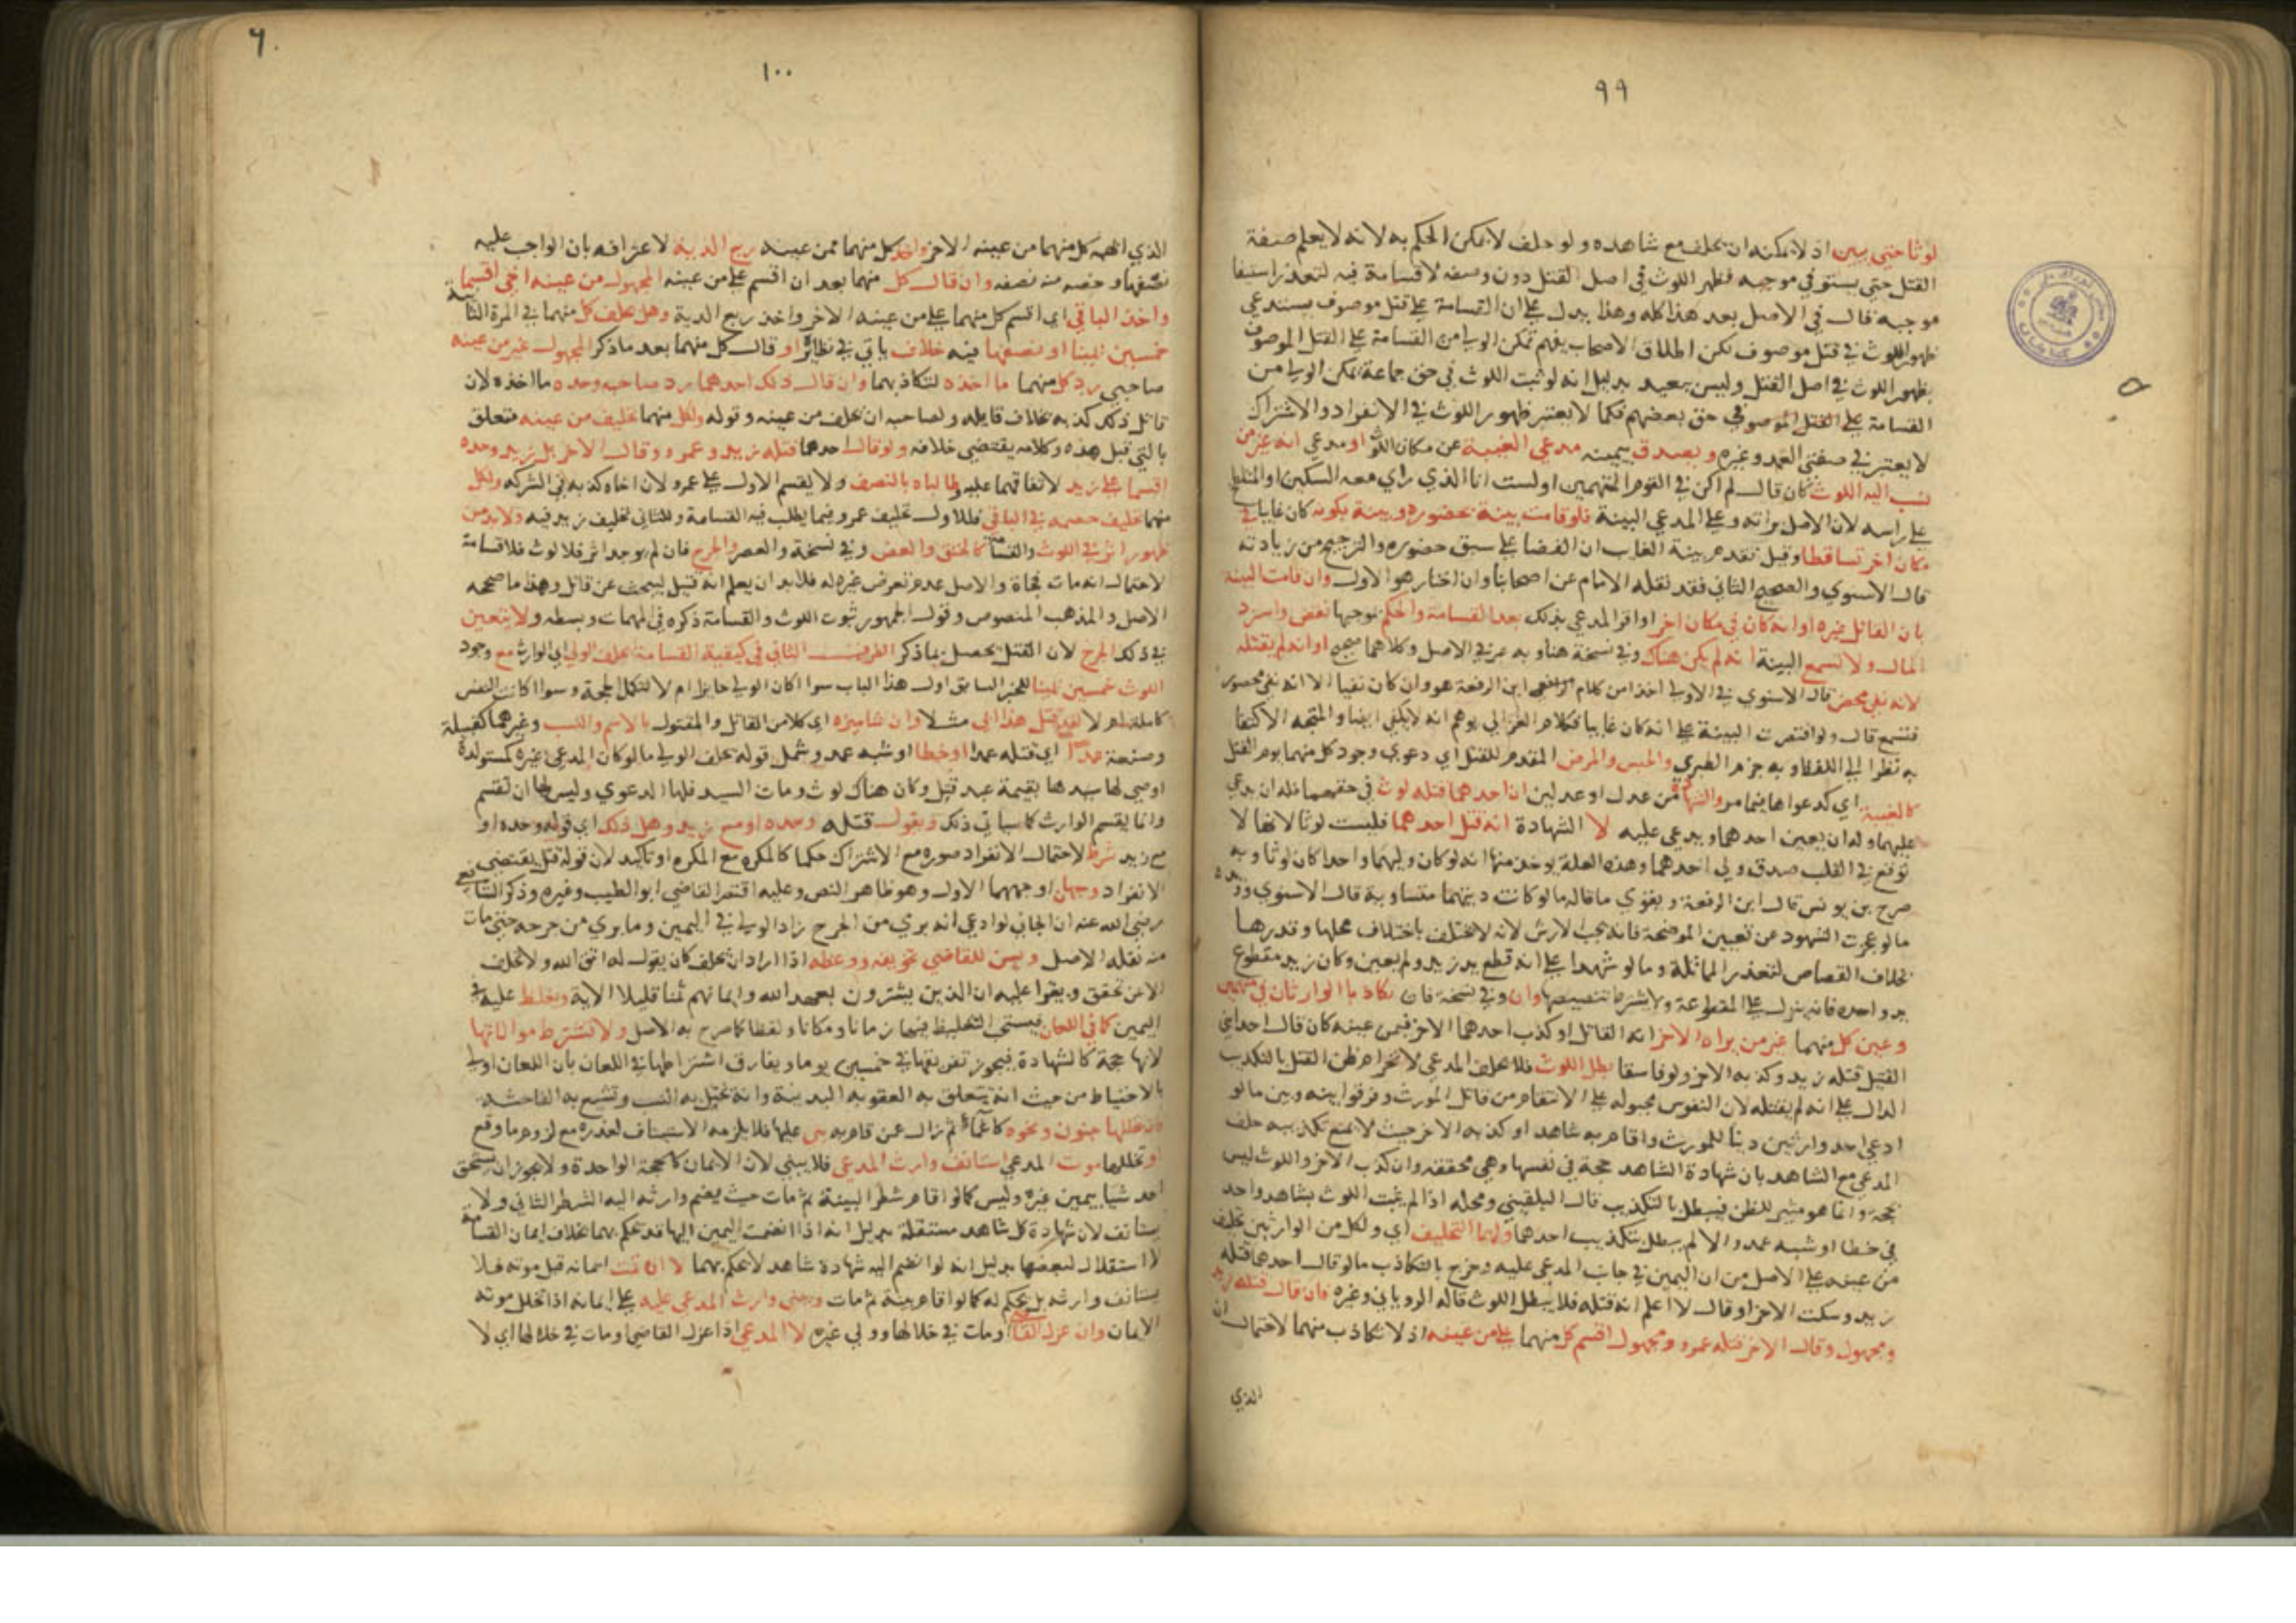 ٩٩
لوثا حتى يبين اذ لا يمكنه ان يحلف مع شاهده ولو حلف لا يمكن الحكم به لانه لا يعلم صفة
القتل حتى يستوفي موجبه فظهر اللوث في اصل القتل دون وصفه لا قسامة فيه لتعذر استيفا
موجبه قال في الاصل بعد هذا كله وهذا يدل على ان القسامة على قتل موصوف يستدعي
ظهور اللوث في قتل موصوف لكن اطلاق الاصحاب يفهم تمكن الولي من القسامة على القتل الموصوف
بظهور اللوث في اصل القتل وليس ببعيد بدليل انه لو ثبت اللوث في حق جماعة تمكن الولي من
القسامة على القتل الموصوف في حق بعضهم فكما لا يعتبر ظهور اللوث في الانفراد والاشتراك
لا يعتبر في صفتي العمد وغيره ويصدق بيمينه مدعي الغيبة عن مكان اللوث او مدعي انه غير من
نسب اليه اللوث كان قال لم اكن في القوم المتهمين او لست انا الذي راي معه السكين او المتلطخ
على راسه لان الاصل براته وعلى المدعي البينة فلو قامت بينة بحضوره وبينة بكونه كان غايبا في
مكان اخر تساقطا وقيل تقدم بينة الغايب ان اتفقا على سبق حضوره والترجيح من زيادته
قال الاسنوي والصحيح الثاني فقد نقله الامام عن اصحابنا وان اختار هو الاول وان قامت البينة
بان القاتل غيره او انه كان في مكان اخر او اقر المدعي بذلك بعد القسامة والحكم بموجبها نقض واسترد
المال ولا تسمع البينة انه لم يكن هناك وفي نسخة هنا وبه عبر في الاصل وكلاهما صحيح او انه لم يقتله
لانه نفي محض قال الاسنوي في الاولى اخذا من كلام ابن الرفعة هو وان كان نفيا الا انه نفي محصور
فتسمع قال ولو اقتصرت البينة على انه كان غايبا فكلام الغزالي يوهم انه لا يكفي ايضا والمتجه الاكتفا
به نظرا الى اللفظ وبه جزم الطبري والحبس والمرض المقدم للقتل اي دعوى وجود كل منهما يوم القتل
كالغيبة اي كدعواها فيما مر والشهادة من عدل او عدلين ان احدهما قتله لوث في حقهما فله ان يدعي
عليهما وله ان يعين احدهما ويدعي عليه لا الشهادة انه قتل احدهما فليست لوثا لانها لا
توقع في القلب صدق ولي احدهما وهذه العلة يوخذ منها انه لو كان وليهما واحدا كان لوثا وبه
صرح بن يونس قال ابن الرفعة ويقوي ما قاله ما لو كانت ديتهما متساوية قال الاسنوي
ما لو عجزت الشهود عن تعيين الموضحة فانه يجب الارش لانه لا يختلف باختلاف محلها وقدرها
بخلاف القصاص لتعذر المماثلة وما لو شهدا على انه قطع يد زيد ولم يعين وكان زيد مقطوع
يد واحده فانه ينزل على المقطوعة ولا يشترط تنصيصها وان وفي نسخة فان تكاذبا الوارثان في
وعين كل منهما غير من يراه الاخر انه القاتل او كذب احدهما الاخر فيمن عينه كان قال احد ابني
القتيل قتله زيد وكذبه الاخر ولو فاسقا بطل اللوث فلا يحلف المدعي لانخرام ظن القتل بالتكذيب
الدال على انه لم يقتله لان النفوس مجبولة على الانتقام من قاتل المورث وفرقوا بينه وبين ما لو
ادعى احد وارثين دينا للمورث واقام به شاهدا وكذبه الاخر حيث لا يمنع تكذيبه حلف
المدعي مع الشاهد بان شهادة الشاهد حجة في نفسها وهي محققة وان كذب الاخر واللوث ليس
بحجة وانما هو مثير للظن فيبطل بالتكذيب قال البلقيني ومحله اذا لم يثبت اللوث بشاهد واحد
في خطا او شبه عمد والا لم يبطل بتكذيب احدهما ولهما التحليف اي ولكل من الوارثين تحليف
من عينه على الاصل من ان اليمين في جانب المدعى عليه وخرج بالتكاذب ما لو قال احدهما قتله
زيد وسكت الاخر او قال لا اعلم انه قتله فلا يبطل اللوث قاله الروياني وغيره فان قال قتله زيد
ومجهول وقال الاخر قتله عمرو ومجهول اقسم كل منهما على من عينه اذ لا تكاذب منهما لاحتمال ان
الذي
١٠٠
الذي ابهمه كل منهما من عينه الاخر واخذ كل منهما ممن عينه ربع الدية لاعترافه بان الواجب عليه
نصفها وحصته منه نصفه وان قال كل منهما بعد ان اقسم على من عينه المجهول من عينه اخي اقسما
واخذ الباقي اي اقسم كل منهما على من عينه الاخر واخذ ربع الدية وهل يحلف كل منهما في المرة الثانية
خمسين يمينا او نصفها فيه خلاف ياتي في نظائره او قال كل منهما بعد ما ذكر المجهول غير من عينه
صاحبي رد كل منهما ما اخذه لتكاذبهما وان قال ذلك احدهما رد صاحبه وحده ما اخذه لان
قائل ذلك كذبه بخلاف قايله ولصاحبه ان يحلف من عينه وقوله ولكل منهما تحليف من عينه متعلق
بالتي قبل هذه وكلامه يقتضي خلافه ولو قال احدهما قتله زيد وعمرو وقال الاخر بل زيد وحده
اقسما على زيد لاتفاقهما عليه وطالباه بالنصف ولا يقسم الاول على عمرو لان اخاه كذبه في الشركة ولكل
منهما تحليف خصمه في الباقي فللاول تحليف عمرو فيما يطلب فيه القسامة وللثاني تحليف زيد فيه ولا بد من
ظهور اثر في اللوث والقسامة كالخنق والعض وفي نسخة والعصر والجرح فان لم يوجد اثر فلا لوث فلا قسامة
لاحتمال انه مات فجاة والاصل عدم تعرض غيره له فلا بد ان يعلم انه قتيل ليبحث عن قاتل وهذا ما صححه
الاصل والمذهب المنصوص وقول الجمهور ثبوت اللوث والقسامة ذكره في المهمات وبسطه ولا يتعين
في ذلك الجرح لان القتل يحصل بما ذكر الطرف الثاني في كيفية القسامة يحلف الولي اي الوارث مع وجود
اللوث خمسين يمينا للخبر السابق اول هذا الباب سوا اكان الولي حايزا ام لا لتكمل الحجة وسوا اكانت النفس
كاملة ام لا لقد قتل هذا ابي مثلا وان شا ميزه اي كلا من القاتل والمقتول بالاسم والنسب وغيرهما كقبيلة
وصنعة عمدا اي قتله عمدا او خطا او شبه عمد وشمل قوله يحلف الولي ما لو كان المدعي غيره كمستولدة
اوصى لها سيدها بقيمة عبد قتل وكان هناك لوث ومات السيد فلها الدعوى وليس لها ان تقسم
وانما يقسم الوارث كما سياتي ذلك ويقول قتله وحده او مع زيد وهل ذلك اي قوله وحده او
مع زيد شرط لاحتمال الانفراد صورة مع الاشتراك حكما كالمكره مع المكره او تاكيد لان قوله قتل يقتضي
الانفراد وجهان اوجههما الاول وهو ظاهر النص وعليه اقتصر القاضي ابو الطيب وغيره وذكر الشافعي
رضي الله عنه ان الجاني لو ادعى انه بري من الجرح زاد الولي في اليمين وما بري من جرحه حتى مات
منه نقله الاصل ويسن للقاضي تخويفه ووعظه اذا اراد ان يحلف كان يقول له اتق الله ولا تحلف
الا عن تحقق ويقرا عليه ان الذين يشترون بعهد الله وايمانهم ثمنا قليلا الاية ويغلظ عليه في
اليمين كما في اللعان فيستحب التغليظ فيها زمانا ومكانا ولفظا كما صرح به الاصل ولا تشترط موالاتها
لانها حجة كالشهادة فيجوز تفريقها في خمسين يوما ويفارق اشتراطها في اللعان بان اللعان اولى
بالاحتياط من حيث انه يتعلق به العقوبة البدنية وانه يختل به النسب وتشيع به الفاحشة
فان تخللها جنون ونحوه كاغماء ثم زال عن قاربه بنى عليها فلا يلزمه الاستيناف لعذره مع لزوم ما وقع
او تخللها موت المدعي استانف وارث المدعي فلا يبني لان الايمان كالحجة الواحدة ولا يجوز ان يستحق
احد شيا بيمين غيره وليس كما لو اقام شطر البينة ثم مات حيث يضم وارثه اليه الشطر الثاني ولا
يستانف لان شهادة كل شاهد مستقلة بدليل انه اذا انضمت اليمين اليها قد يحكم بهما بخلاف ايمان القسامة
لا استقلال لبعضها بدليل انه لو انضم اليه شهادة شاهد لا يحكم بهما لا ان تمت ايمانه قبل موته فلا
يستانف وارثه بل يحكم له كما لو اقام بينة ثم مات ويبني وارث المدعى عليه على ايمانه اذا تخلل موته
الايمان وان عزل القاضي او مات في خلالها وولي غيره لا المدعي اذا عزل القاضي او مات في خلالها اي لا